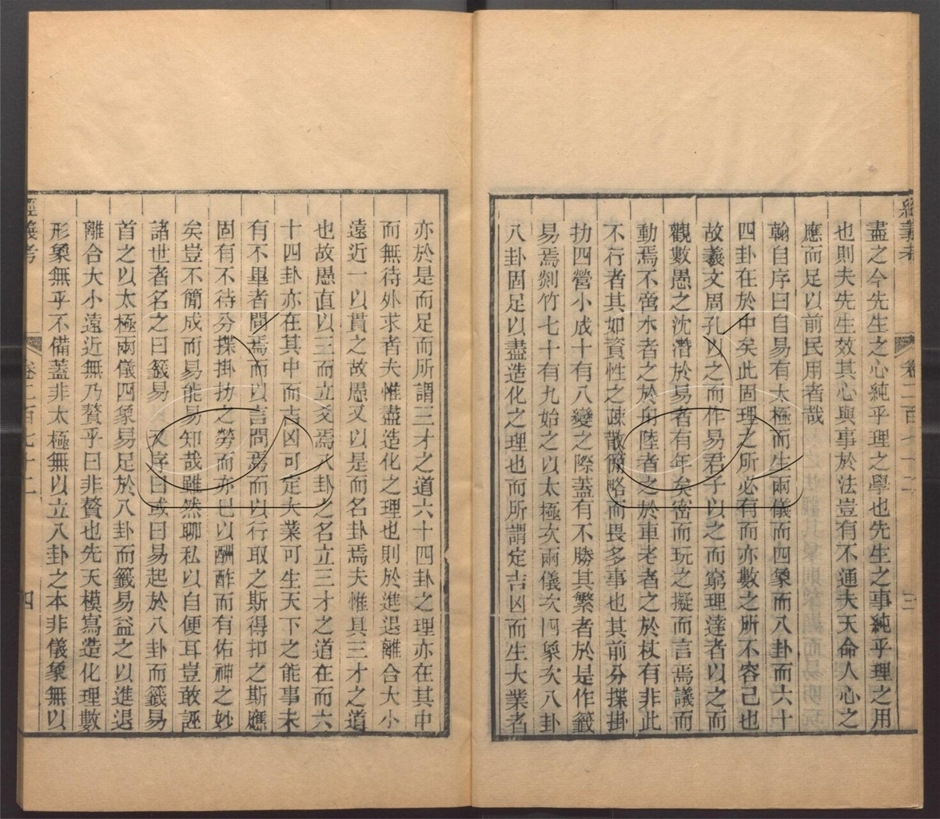 經義考
卷二百七十二
三
盡之今先生之心純乎理之學也先生之事純乎理之用
也則夫先生效其心與事於法豈有不通夫天命人心之
應而足以前民用者哉
翰自序曰自易有太極而生兩儀而四象而八卦而六十
四卦在於中矣此固理之所必有而亦數之所不容已也
故羲文周孔以之而作易君子以之而窮理達者以之而
觀數愚之沈潛於易者有年矣密而玩之擬而言焉議而
動焉不啻水者之於舟陸者之於車老者之於杖有非此
不行者其如資性之疎散簡略而畏多事也其前分揲掛
扐四營小成十有八變之際蓋有不勝其繁者於是作籤
易焉剡竹七十有九始之以太極次兩儀次四象次八卦
八卦固足以盡造化之理也而所謂定吉凶而生大業者
亦於是而足而所謂三才之道六十四卦之理亦在其中
而無待外求者夫惟盡造化之理也則於進退離合大小
遠近一以貫之故愚又以是而名卦焉夫惟具三才之道
也故愚直以三而立爻焉八卦之名立三才之道在而六
十四卦亦在其中而吉凶可定大業可生天下之能事未
有不畢者問焉而以言問焉而以行取之斯得扣之斯應
固有不待分揲掛扐之勞而亦已以酬酢而有佑神之妙
矣豈不簡成而易能易知哉雖然聊私以自便耳豈敢誣
諸世者名之曰籤易　又序曰或曰易起於八卦而籤易
首之以太極兩儀四象易足於八卦而籤易益之以進退
離合大小遠近無乃贅乎曰非贅也先天模寫造化理數
形象無乎不備蓋非太極無以立八卦之本非儀象無以
經義考
卷二百七十二
四